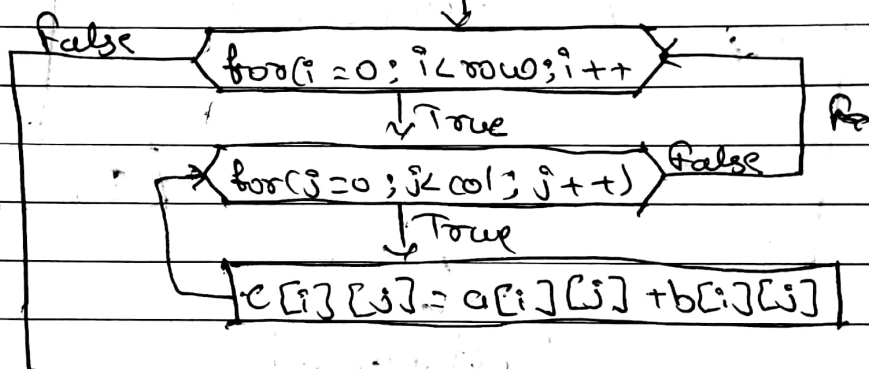 False
for(i=0; i<row; i++
True
for(j=0; j<col; j++)
False
True
c[i][j]=a[i][j]+b[i][j]